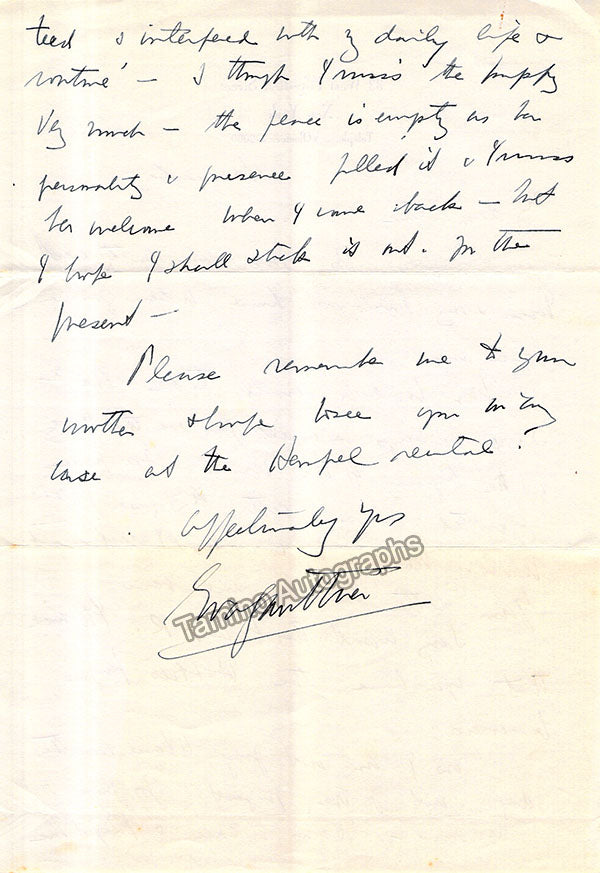 tued & interfered with my daily life &
routine' — I though I miss the puppy
very much — the place is empty as her
personality & presence filled it & I miss
her welcome when I come back — but
I hope I shall stick it out. for the
present —
Please remember me to your
mother & hope to see you in any
case at the Hempel recital!
Affectionately yrs
Eva Gauthier
Tamino Autographs